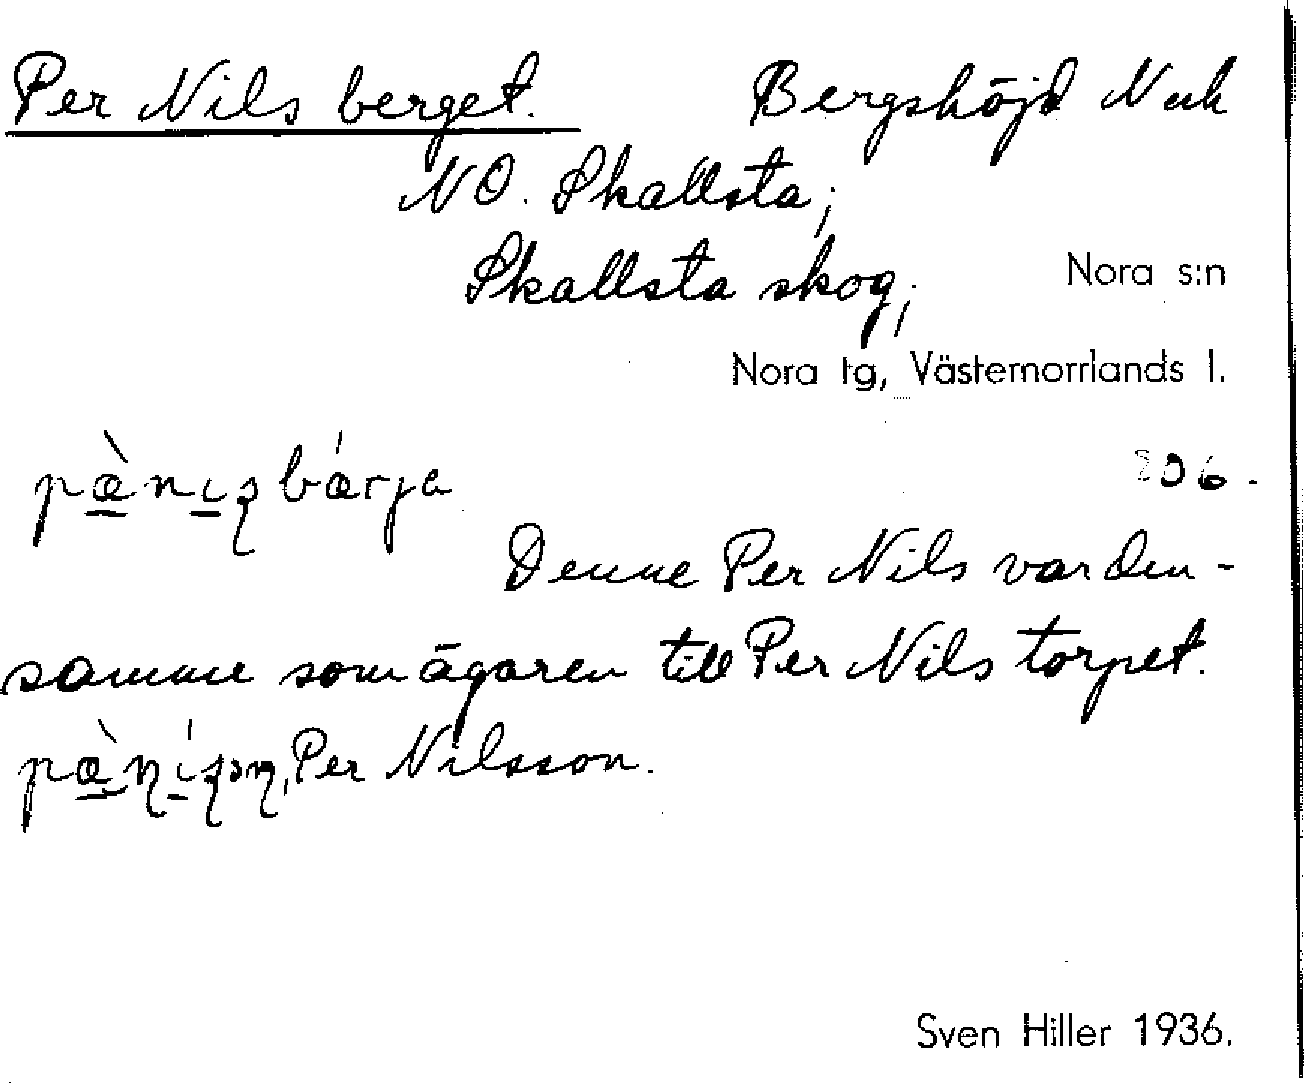 Per Nils berget. Bergshöjd N och
NO. Skallsta;
Skallsta skog; Nora s:n
Nora tg, Västernorrlands l.
pæ̀nɪʂbǽrja
206.
Denne Per Nils var den-
samme som ägaren till Per Nils torpet.
Per Nilsson.
Sven Hiller 1936.